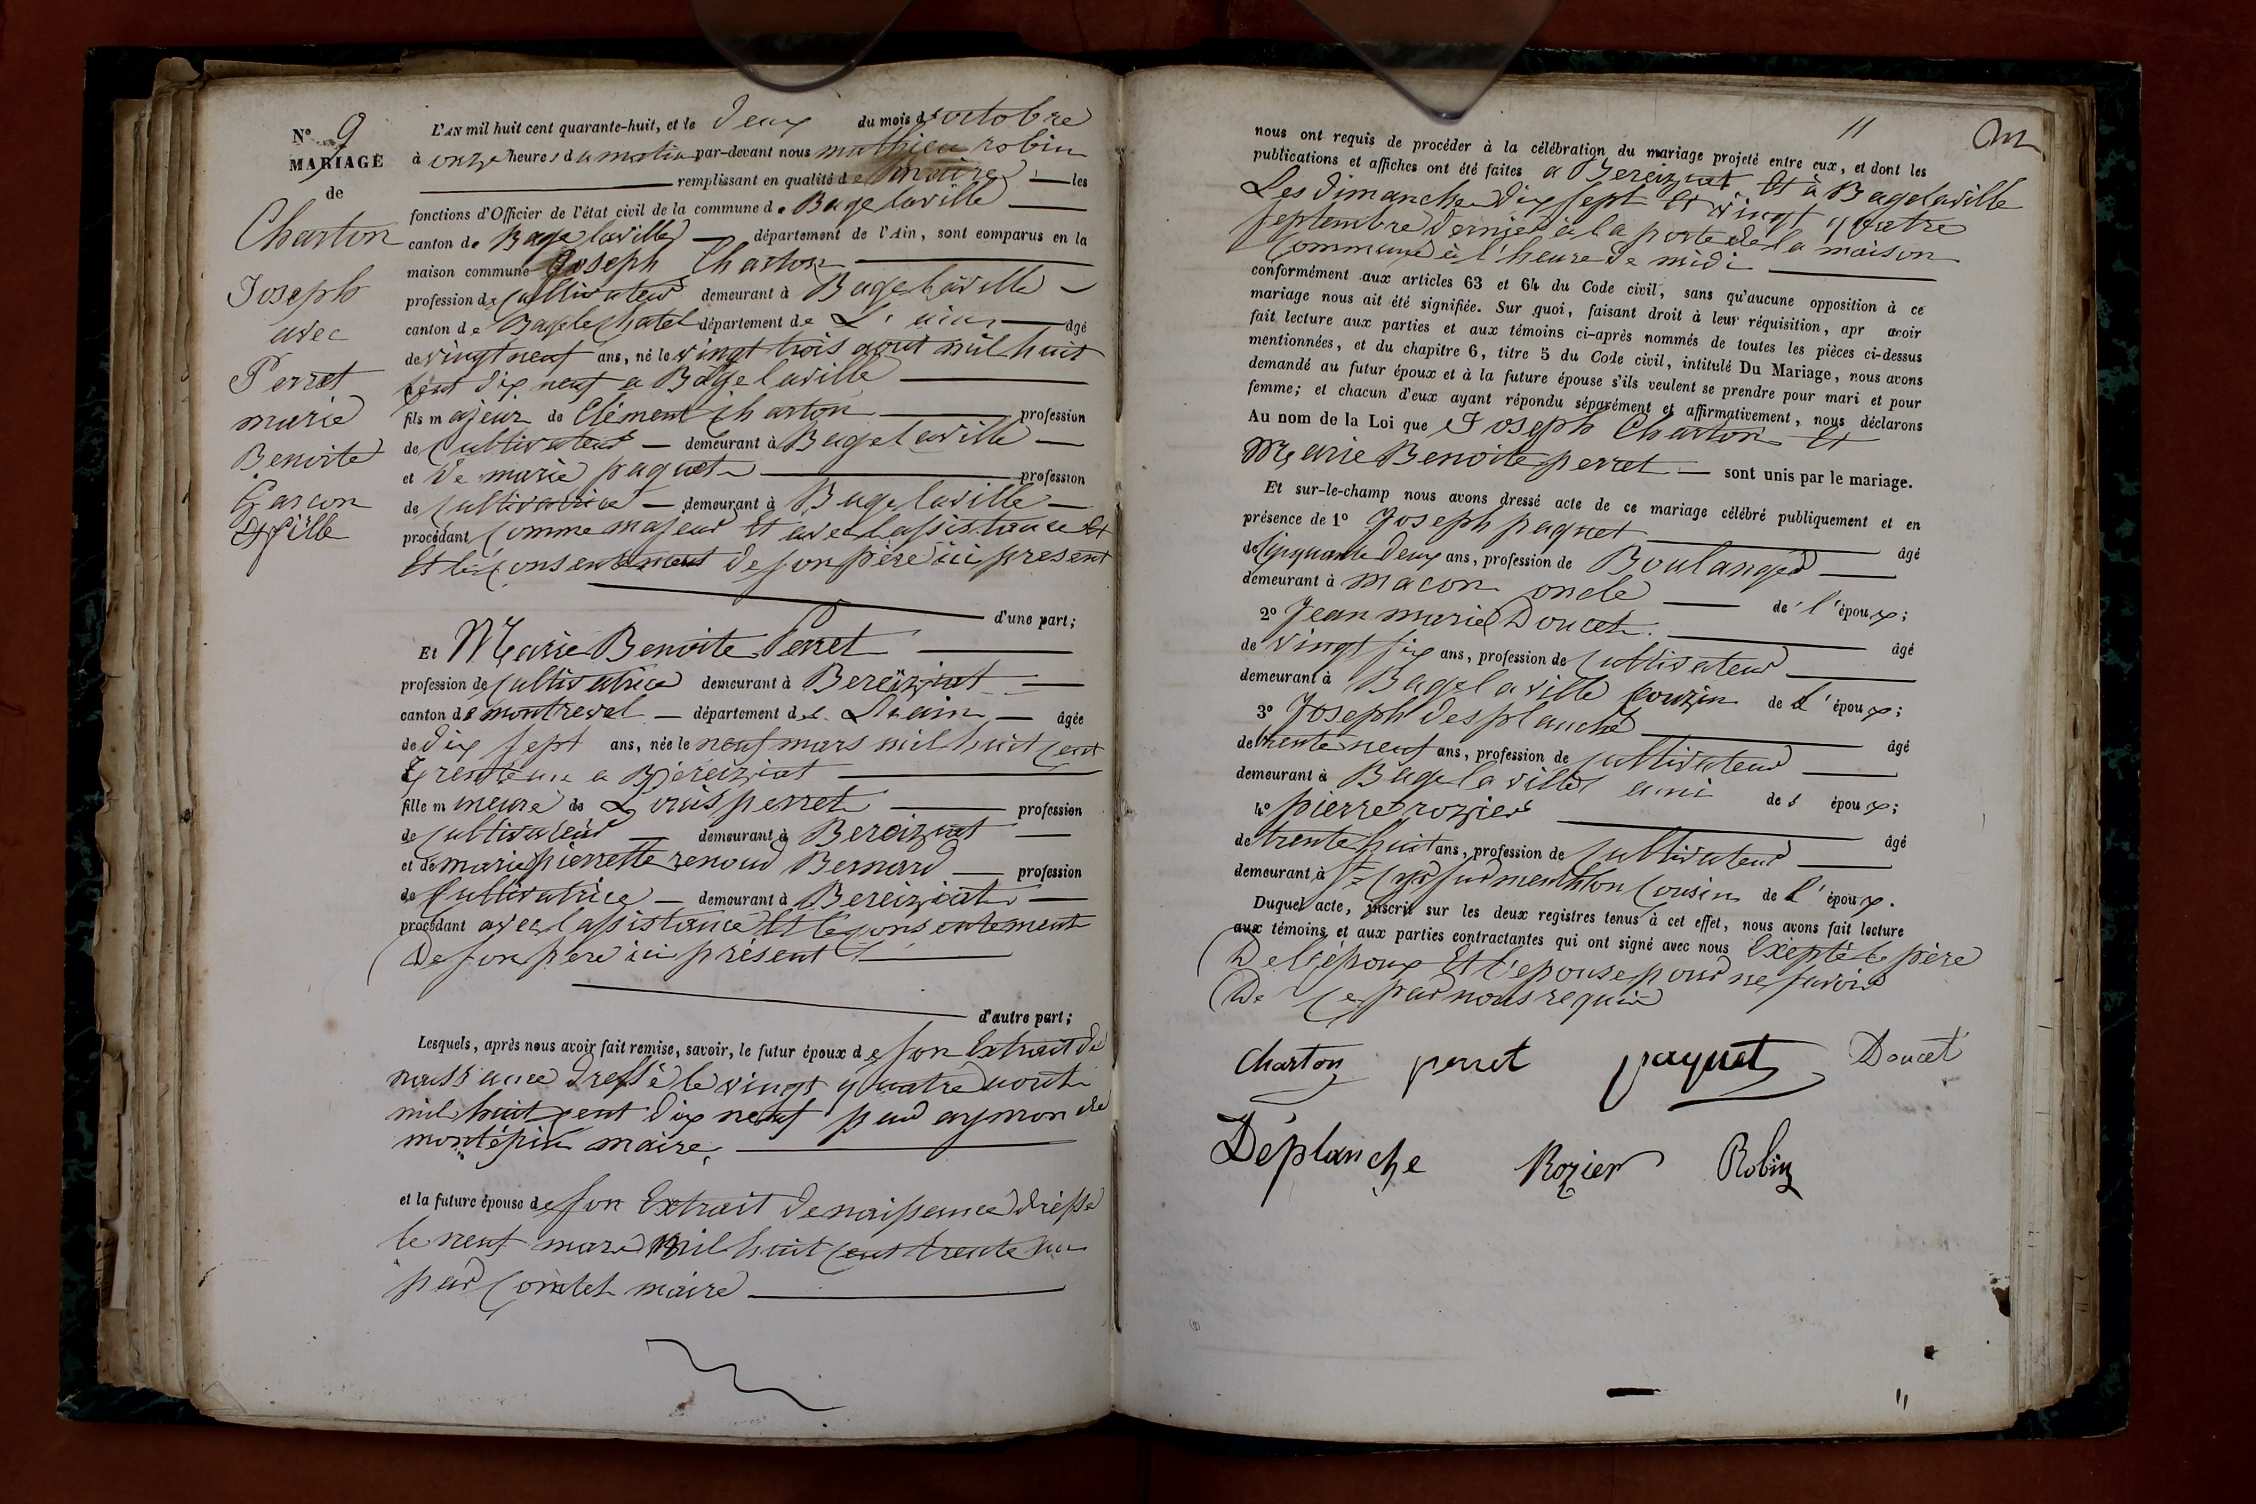 N° 9
MARIAGE
de
Charton
Joseph
avec
Perret
marie
Benoite
Garcon
Et fille
L'AN mil huit cent quarante-huit, et le deux du mois d'octobre
à onze heures du matin par-devant nous mathieu robin
remplissant en qualité de maire les
fonctions d'Officier de l'état civil de la commune de Bagelaville
canton de Bagelaville département de l'Ain, sont comparus en la
maison commune Joseph Charton
profession de Cultivateur demeurant à Bagelaville
canton de Bagelechatel département de L'ain âgé
de vingt neuf ans, né le vingt trois aout mil huit
Cent dix neuf a Bagelaville
fils majeur de Clément Charton profession
de Cultivateur demeurant à Bagelaville
et de marie paquet profession
de Cultivatrice demeurant à Bagelaville
procédant Comme majeur Et avec lassistance Et
Et le Consentement de son père ici present
d'une part;
Et Marie Benoite Perret
profession de Cultivatrice demeurant à Bereiziat
canton de montrevel département de L'ain âgée
de dix sept ans, née le neuf mars mil huit Cent
trente un a Béreiziat
fille mineure de Louis perret profession
de Cultivateur demeurant à Bereiziat
et de marie pierrette renoud Bernard profession
de Cultivatrice demeurant à Bereiziat
procédant avec lassistance Et le Consentement
De son père ici présent
d'autre part;
Lesquels, après nous avoir fait remise, savoir, le futur époux de son Extrait de
naissance dressé le vingt quatre aout
mil huit cent dix neuf par aymon de
montépin maire
et la future épouse de son Extrait de naissance dressé
le neuf mars mil huit Cent trente un
par Comtet maire
11
nous ont requis de procéder à la célébration du mariage projeté entre eux, et dont les
publications et affiches ont été faites a Bereiziat Et à Bagelaville
Les dimanches dix sept Et vingt quatre
septembre dernier à la porte de la maison
Commune à l'heure de midi
conformément aux articles 63 et 64 du Code civil, sans qu'aucune opposition à ce
mariage nous ait été signifiée. Sur quoi, faisant droit à leur réquisition, apr avoir
fait lecture aux parties et aux témoins ci-après nommés de toutes les pièces ci-dessus
mentionnées, et du chapitre 6, titre 5 du Code civil, intitulé Du Mariage, nous avons
demandé au futur époux et à la future épouse s'ils veulent se prendre pour mari et pour
femme; et chacun d'eux ayant répondu séparément et affirmativement, nous déclarons
Au nom de la Loi que Joseph Charton Et
Marie Benoite perret sont unis par le mariage.
Et sur-le-champ nous avons dressé acte de ce mariage célébré publiquement et en
présence de 1° Joseph paquet âgé
de Cinquante deux ans, profession de Boulanger
demeurant à macon oncle de l'époux;
2° Jean marie Doucet âgé
de vingt six ans, profession de Cultivateur
demeurant à Bagelaville Couzin de L'époux;
3° Joseph desplanche âgé
de trente neuf ans, profession de Cultivateur
demeurant à Bagelaville ami de s époux;
4° pierre rozier âgé
de trente huit ans, profession de Cultivateur
demeurant à St Cyr sur menthon Cousin de L'époux.
Duquel acte, inscrit sur les deux registres tenus à cet effet, nous avons fait lecture
aux témoins et aux parties contractantes qui ont signé avec nous Excepté le père
De l'époux Et l'épouse pour ne savoir
De Ce par nous requis
Charton perret paquet Doucet
Déplanche Rozier Robin
(2)